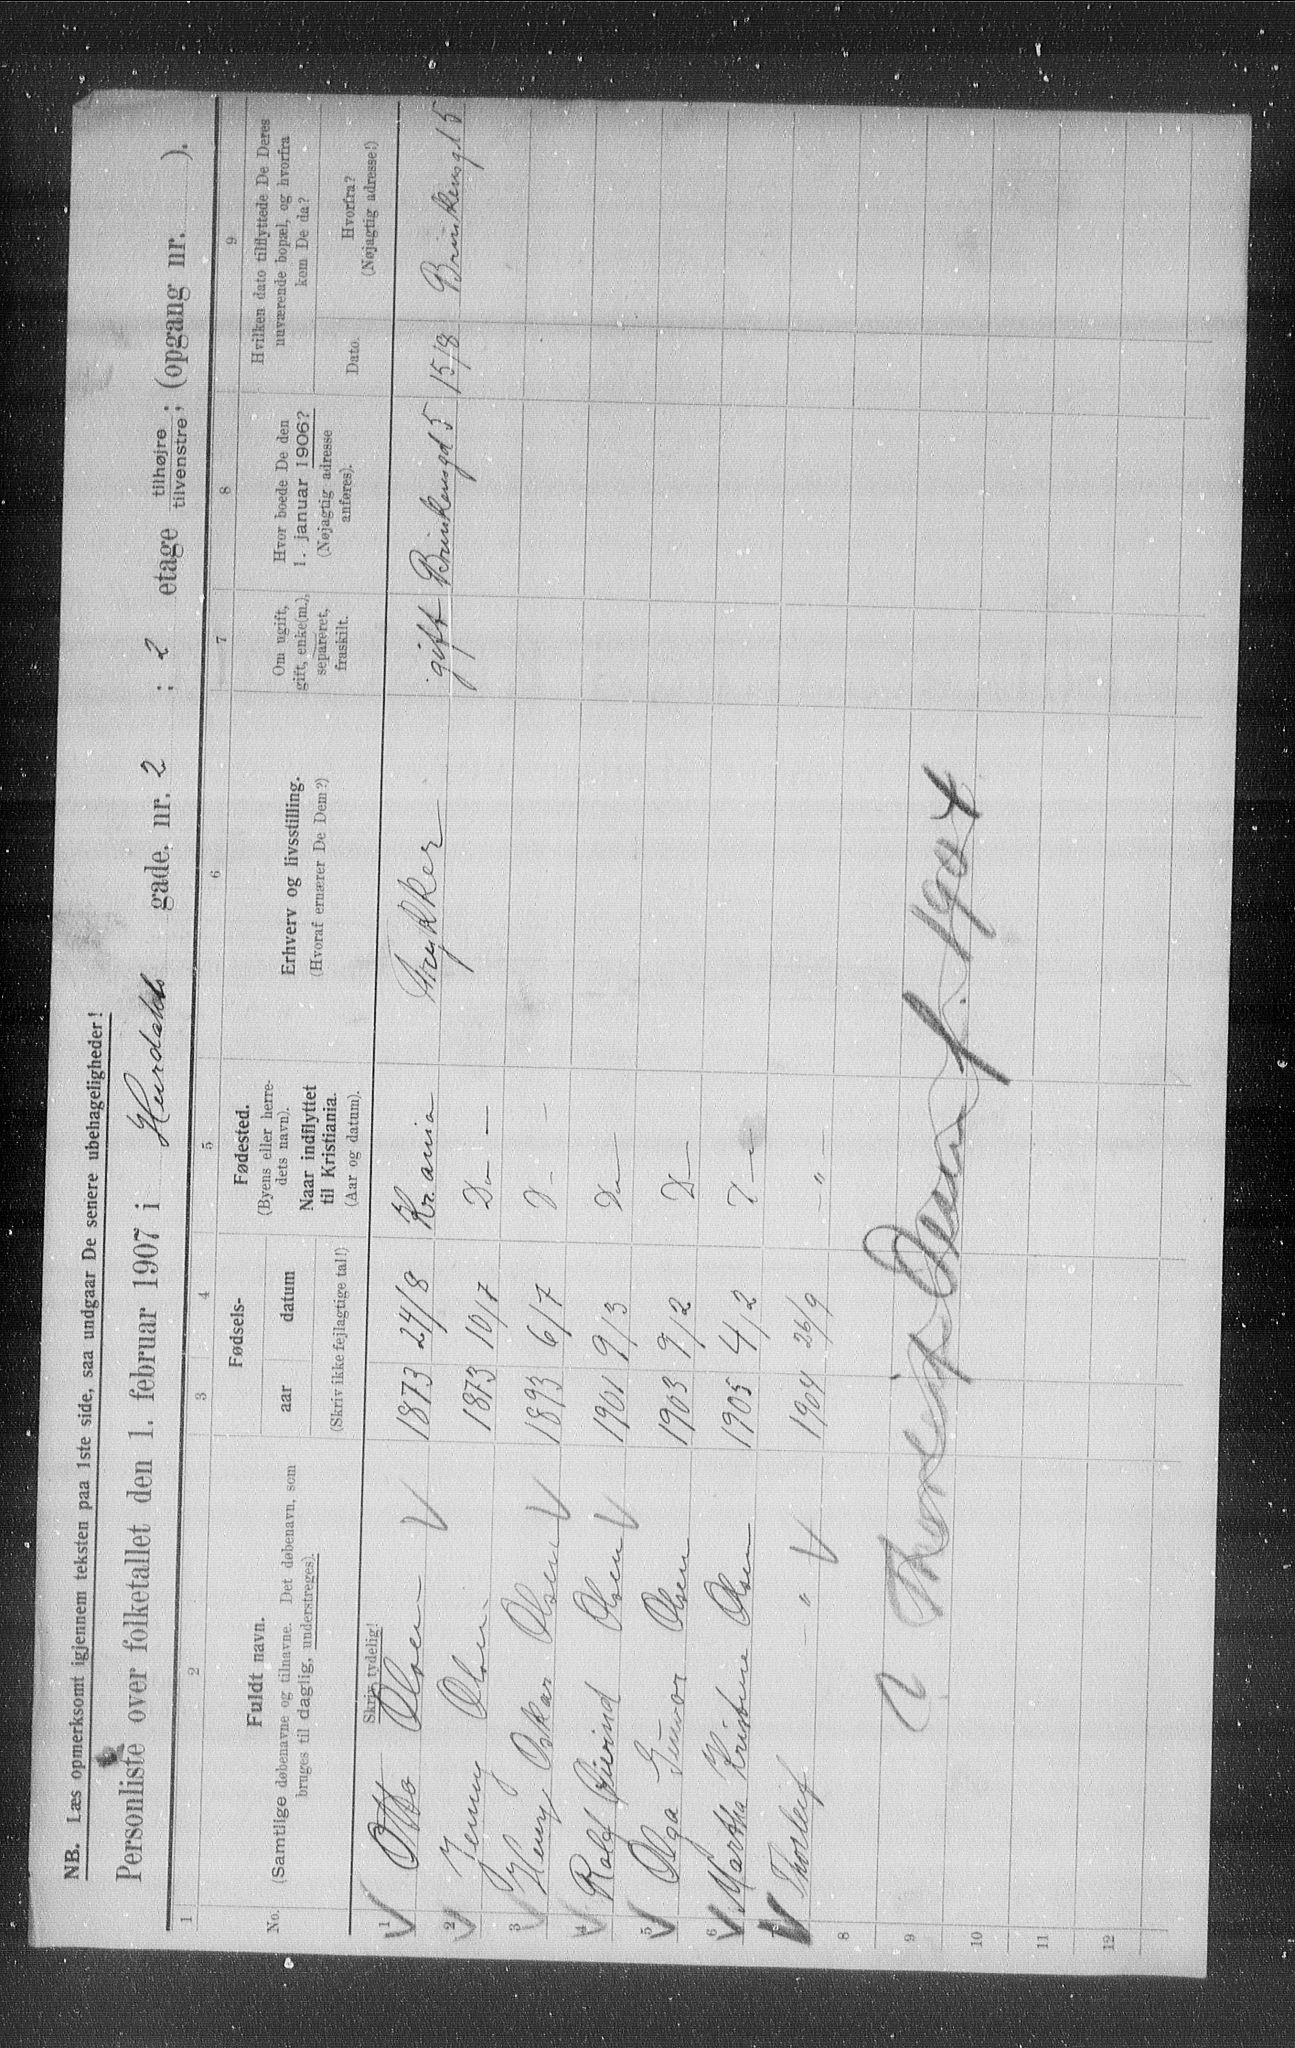 NB. Læs opmerksomt igjennem teksten paa 1ste side, saa undgaar De senere ubehageligheder!
Personliste over folketallet den 1. februar 1907 i Hurdals gade, nr. 2 ; 2 etage tilhøjre tilvenstre; (opgang nr. ).
1 2 3 4 5 6 7 8 9
No.
Fuldt navn.
(Samtlige døbenavne og tilnavne. Det døbenavn, som
bruges til daglig, understreges).
Skriv tydelig!
Fødsels-
aar datum
(Skriv ikke fejlagtige tal!)
Fødested.
(Byens eller herre-
dets navn).
Naar indflyttet
til Kristiania.
(Aar og datum).
Erhverv og livsstilling.
(Hvoraf ernærer De Dem?)
Om ugift,
gift, enke(m.),
separeret,
fraskilt.
Hvor boede De den
1. januar 1906?
(Nøjagtig adresse
anføres).
Hvilken dato tilflyttede De Deres
nuværende bopæl, og hvorfra
kom De da?
Dato.
Hvorfra?
(Nøjagtig adresse!)
1 Otto Olsen 1873 24/8 Kr.ania gift Brinkensgd 5 15/8 Brinkensgd 5
2 Jenny Olsen 1873 10/7 Do —
3 Henry Oskar Olsen 1893 6/7 D —
4 Rolf Eivind Olsen 1901 9/3 Do —
5 Olga Gunvor Olsen 1903 9/2 D —
6 Martha Kristine Olsen 1905 4/2 D —
7 Thorleif — " — 1904 26/9 — " —
8
9 Thorleif Olsen f. 1904
10
11
12